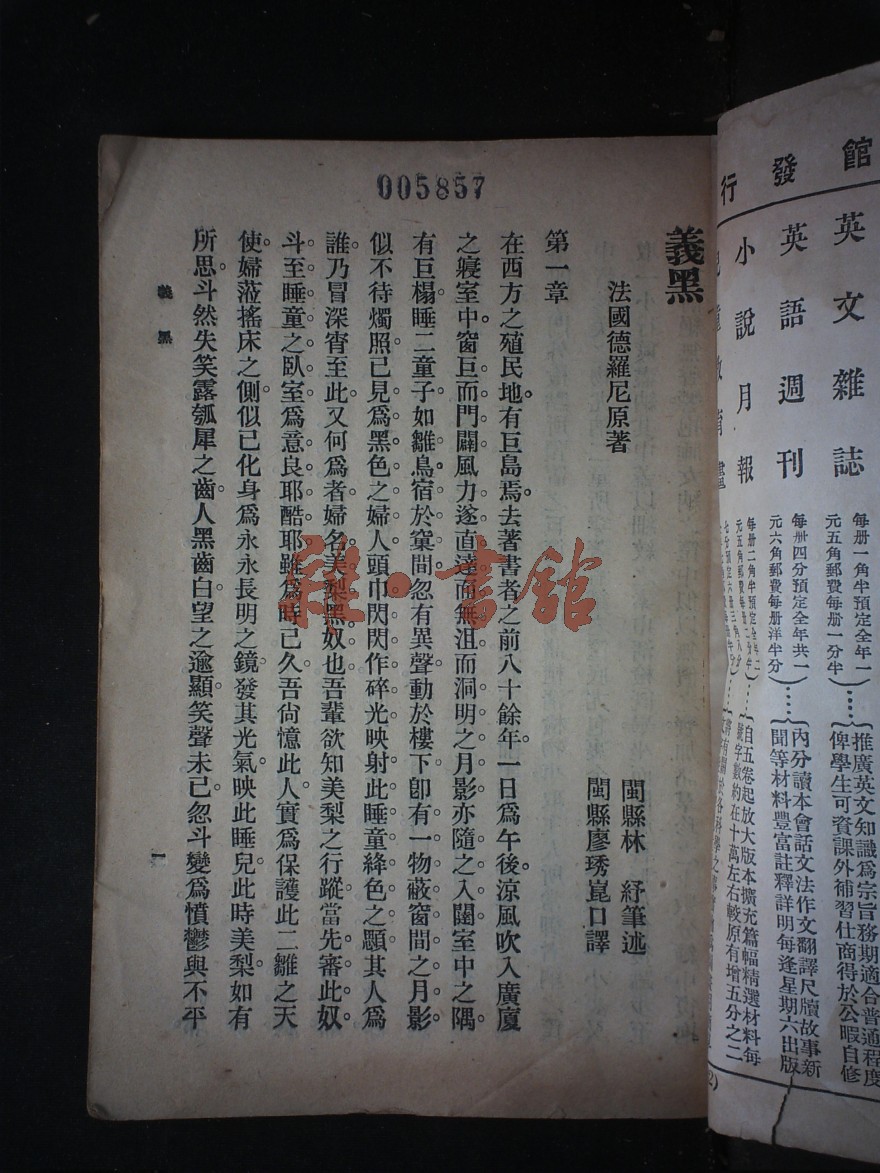 館發行
英文雜誌
每册一角半預定全年一
元五角郵費每册一分半
推廣英文知識爲宗旨務期適合普通程度
俾學生可資課外補習仕商得於公暇自修
英語週刊
每册四分預定全年共一
元六角郵費每册洋半分
內分讀本會話文法作文翻譯尺牘故事新
聞等材料豐富註釋詳明每逢星期六出版
小說月報
每册二角半預定全年二
元五角郵費每册二分半
自五卷起放大版本擴充篇幅精選材料每
號字數約在十萬左右較原有增五分之二
005857
義黑
法國德羅尼原著
閩縣林 紓筆述
閩縣廖琇崑口譯
第一章
在西方之殖民地。有巨島焉。去著書者之前八十餘年。一日爲午後。涼風吹入廣廈
之寢室中。窗巨而門闢。風力遂直達而無沮。而洞明之月影。亦隨之入闥。室中之隅。
有巨榻。睡二童子。如雛鳥。宿於窠間。忽有異聲動於樓下。卽有一物蔽窗間之月影。
似不待燭照。已見爲黑色之婦人。頭巾閃閃作碎光。映射此睡童絳色之顋。其人爲
誰。乃冒深宵至此。又何爲者。婦名美梨。黑奴也。吾輩欲知美梨之行蹤。當先審此奴。
斗至睡童之臥室。爲意良耶酷耶。雖爲時已久。吾尙憶此人。實爲保護此二雛之天
使。婦蒞搖床之側。似已化身爲永永長明之鏡。發其光氣。映此睡兒。此時美梨如有
所思。斗然失笑。露瓠犀之齒。人黑齒白。望之逾顯。笑聲未已。忽斗變爲憤鬱與不平
義黑
一
雜·書館